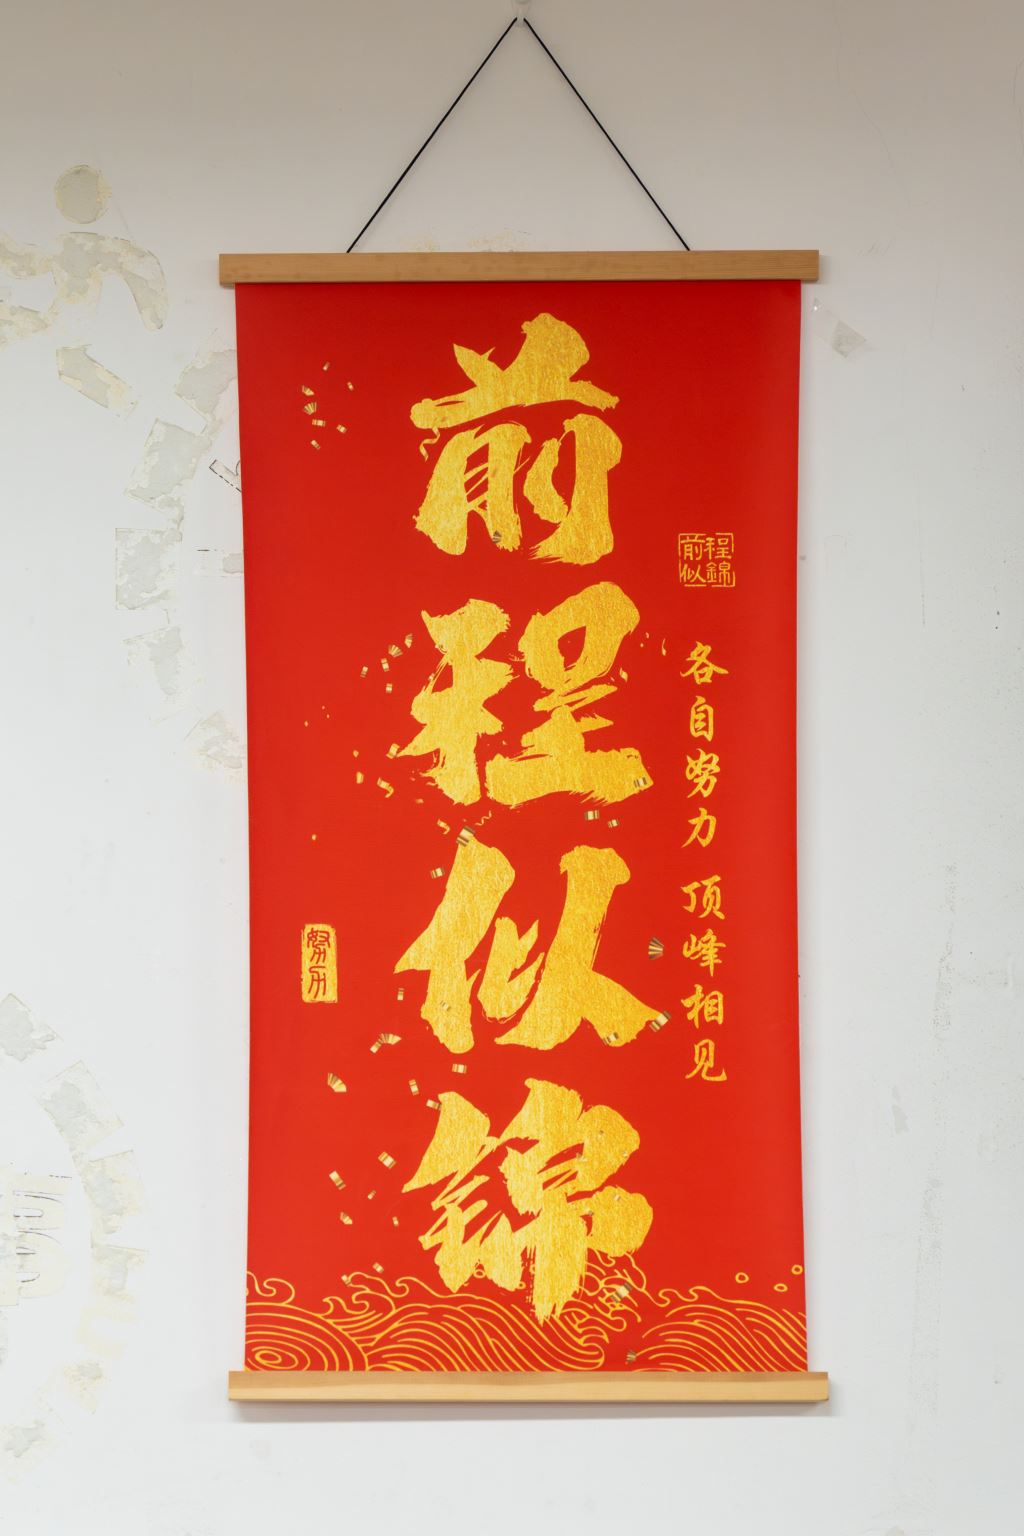 前程似錦
前程似錦
各自努力 顶峰相见
努力